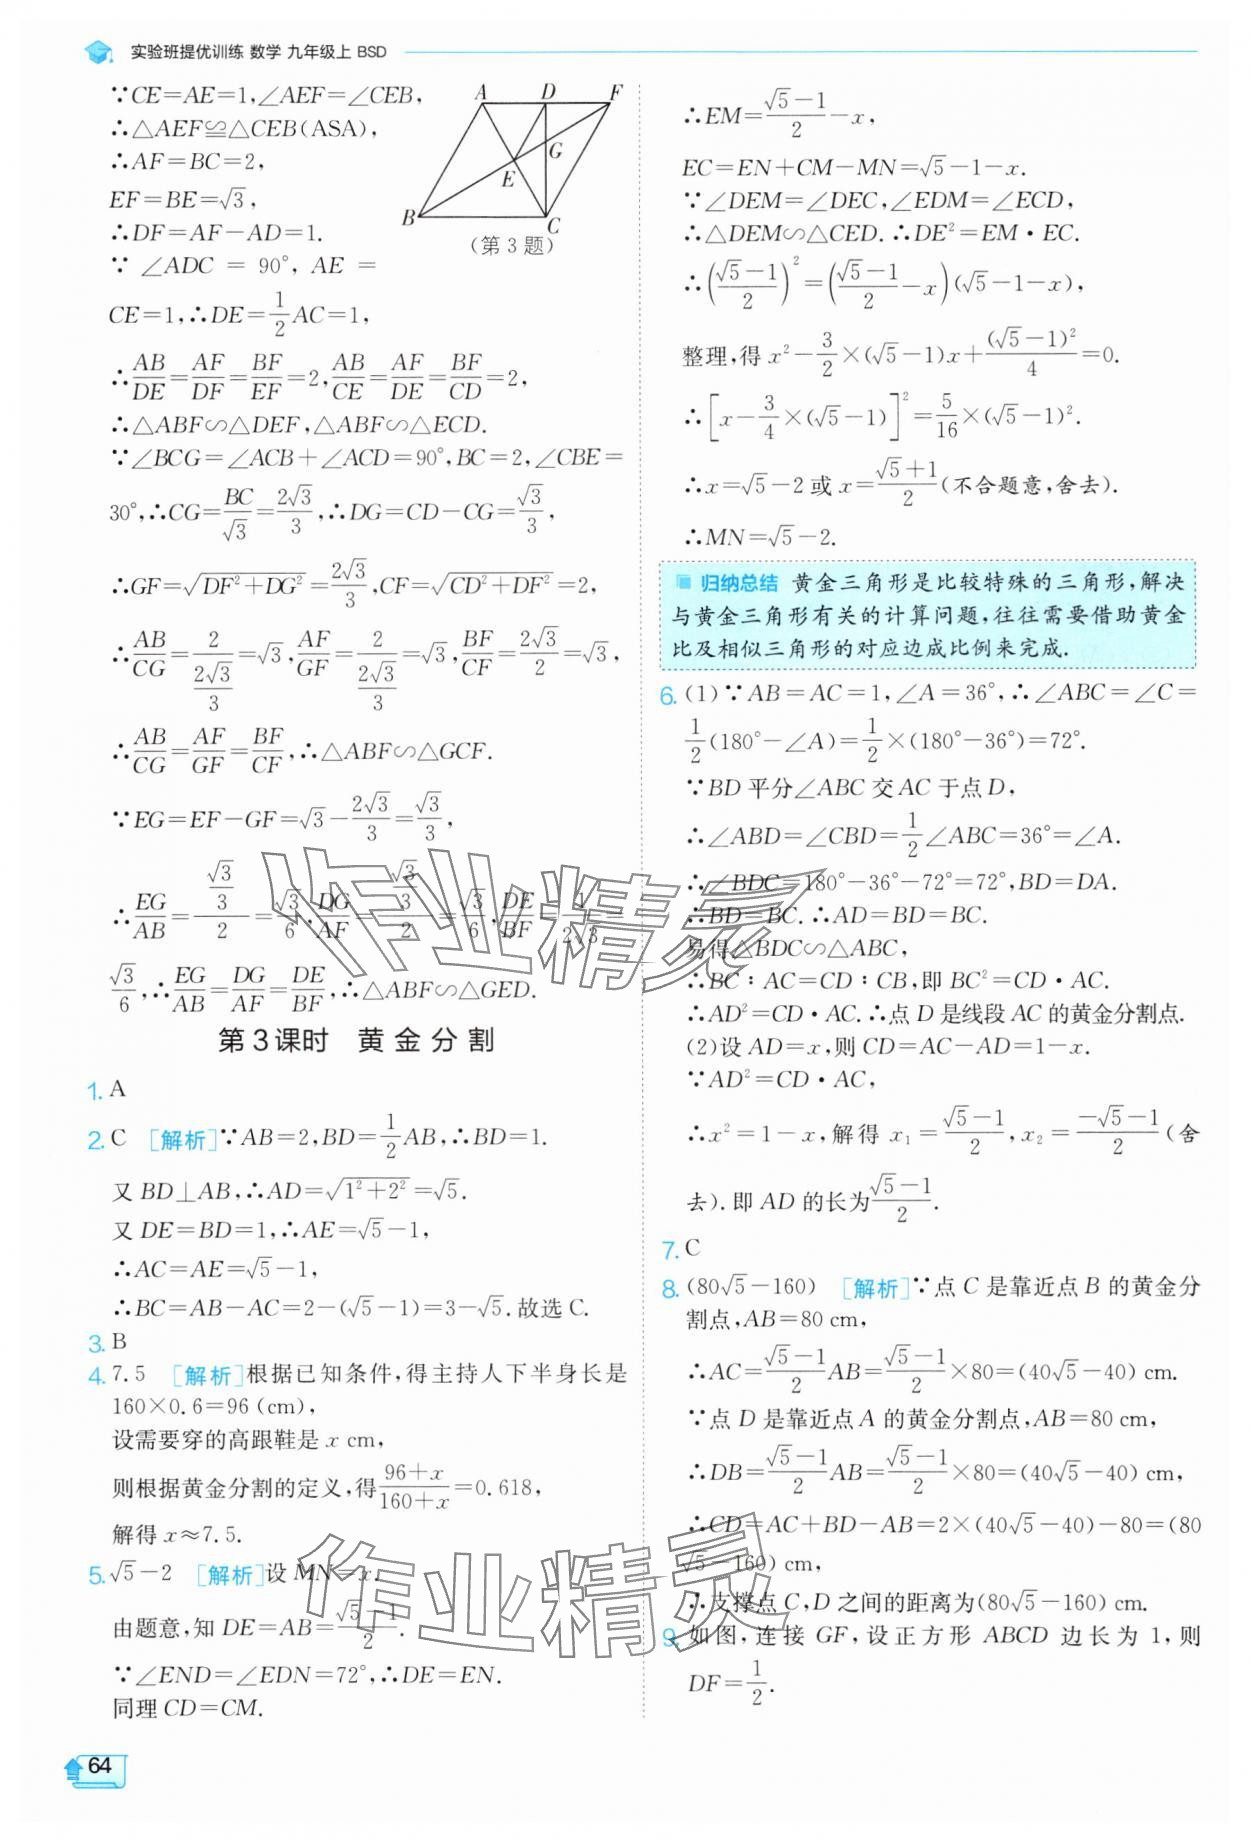 实验班提优训练 数学 九年级上 BSD
∵CE=AE=1,∠AEF=∠CEB,
∴△AEF≌△CEB(ASA),
∴AF=BC=2,
EF=BE=√3,
∴DF=AF-AD=1.
∵ ∠ADC = 90°, AE =
CE=1,∴DE=1/2AC=1,
A D F G E B C
(第3题)
∴AB/DE=AF/DF=BF/EF=2,AB/CE=AF/DE=BF/CD=2,
∴△ABF∽△DEF,△ABF∽△ECD.
∵∠BCG=∠ACB+∠ACD=90°,BC=2,∠CBE=
30°,∴CG=BC/√3=2√3/3,∴DG=CD-CG=√3/3,
∴GF=√(DF²+DG²)=2√3/3,CF=√(CD²+DF²)=2,
∴AB/CG=2/(2√3/3)=√3,AF/GF=2/(2√3/3)=√3,BF/CF=2√3/2=√3,
∴AB/CG=AF/GF=BF/CF,∴△ABF∽△GCF.
∵EG=EF-GF=√3-2√3/3=√3/3,
∴EG/AB=(√3/3)/2=√3/6,DG/AF=(√3/3)/2=√3/6,DE/BF=1/2√3=
√3/6,∴EG/AB=DG/AF=DE/BF,∴△ABF∽△GED.
第3课时 黄金分割
1. A
2. C [解析]∵AB=2,BD=1/2AB,∴BD=1.
又BD⊥AB,∴AD=√(1²+2²)=√5.
又DE=BD=1,∴AE=√5-1,
∴AC=AE=√5-1,
∴BC=AB-AC=2-(√5-1)=3-√5.故选C.
3. B
4. 7.5 [解析]根据已知条件,得主持人下半身长是
160×0.6=96(cm),
设需要穿的高跟鞋是x cm,
则根据黄金分割的定义,得(96+x)/(160+x)=0.618,
解得x≈7.5.
5. √5-2 [解析]设MN=x.
由题意,知DE=AB=(√5-1)/2.
∵∠END=∠EDN=72°,∴DE=EN.
同理CD=CM.
64
∴EM=(√5-1)/2-x,
EC=EN+CM-MN=√5-1-x.
∵∠DEM=∠DEC,∠EDM=∠ECD,
∴△DEM∽△CED.∴DE²=EM·EC.
∴((√5-1)/2)²=((√5-1)/2-x)(√5-1-x),
整理,得x²-3/2×(√5-1)x+(√5-1)²/4=0.
∴[x-3/4×(√5-1)]²=5/16×(√5-1)².
∴x=√5-2或x=(√5+1)/2(不合题意,舍去).
∴MN=√5-2.
归纳总结 黄金三角形是比较特殊的三角形,解决
与黄金三角形有关的计算问题,往往需要借助黄金
比及相似三角形的对应边成比例来完成.
6. (1)∵AB=AC=1,∠A=36°,∴∠ABC=∠C=
1/2(180°-∠A)=1/2×(180°-36°)=72°.
∵BD平分∠ABC交AC于点D,
∴∠ABD=∠CBD=1/2∠ABC=36°=∠A.
∴∠BDC=180°-36°-72°=72°,BD=DA.
∴BD=BC.∴AD=BD=BC.
易得△BDC∽△ABC,
∴BC∶AC=CD∶CB,即BC²=CD·AC.
∴AD²=CD·AC.∴点D是线段AC的黄金分割点.
(2)设AD=x,则CD=AC-AD=1-x.
∵AD²=CD·AC,
∴x²=1-x,解得x₁=(√5-1)/2,x₂=(-√5-1)/2(舍
去).即AD的长为(√5-1)/2.
7. C
8. (80√5-160) [解析]∵点C是靠近点B的黄金分
割点,AB=80 cm,
∴AC=(√5-1)/2AB=(√5-1)/2×80=(40√5-40)cm.
∵点D是靠近点A的黄金分割点,AB=80 cm,
∴DB=(√5-1)/2AB=(√5-1)/2×80=(40√5-40)cm,
∴CD=AC+BD-AB=2×(40√5-40)-80=(80
√5-160)cm,
∴支撑点C,D之间的距离为(80√5-160)cm.
9. 如图,连接GF,设正方形ABCD边长为1,则
DF=1/2.
作业精灵
作业精灵